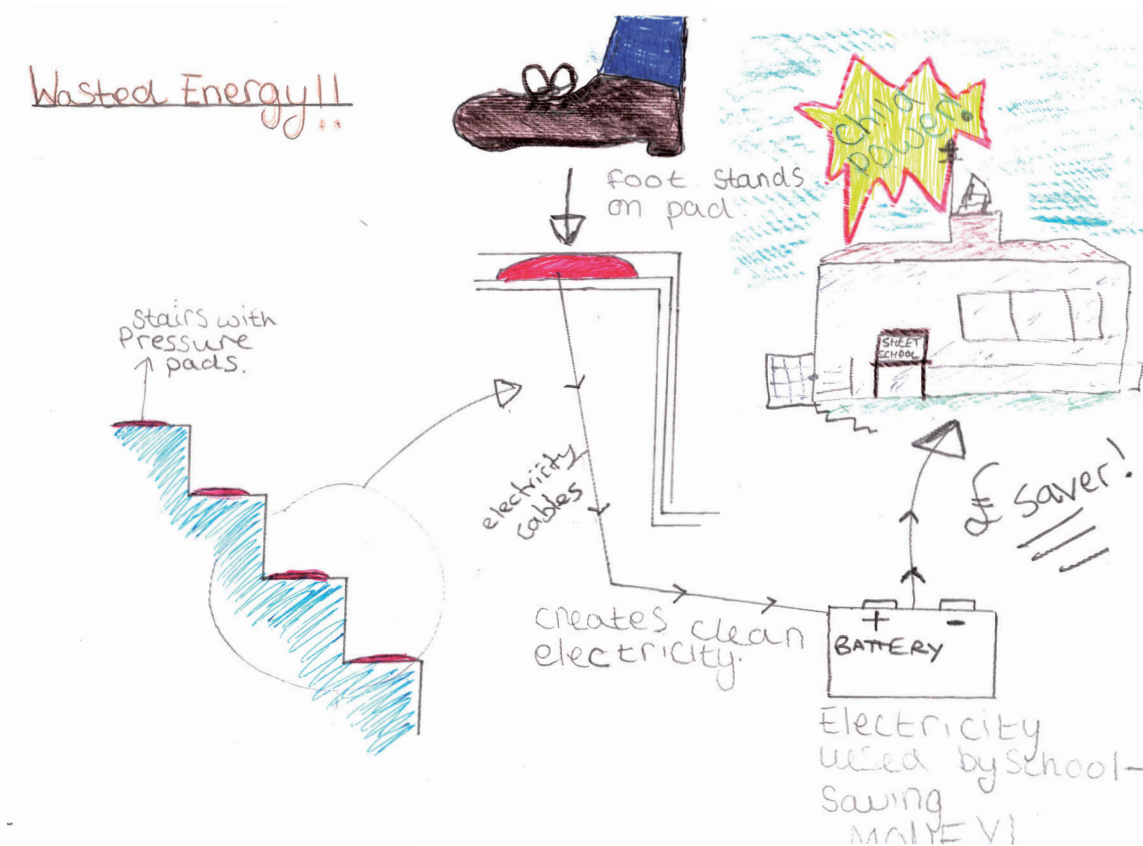 Wasted Energy!!
foot stands
on pad.
child
power!
Stairs with
Pressure
pads.
SHEET
SCHOOL
electricity
cables
£ saver!
creates clean
electricity.
+ -
BATTERY
Electricity
used by School-
Saving
MONEY!